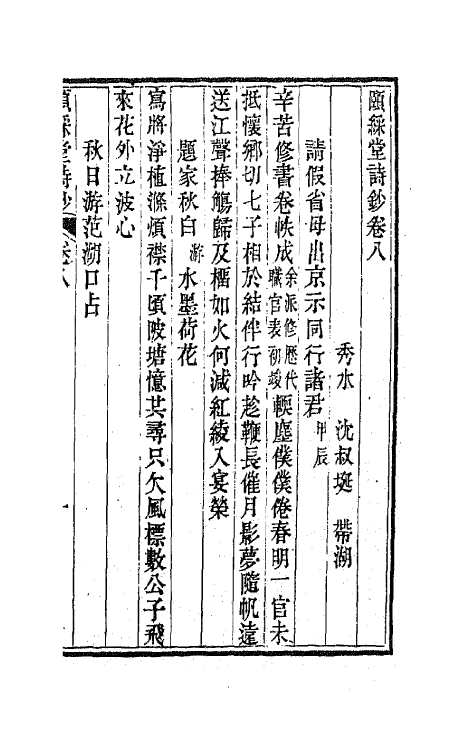 頤綵堂詩鈔卷八
秀水 沈叔埏 帶湖
請假省母出京示同行諸君甲辰
辛苦修書卷帙成余派修歷代職官表初竣輭塵僕僕倦春明一官未
抵懷鄉切七子相於結伴行吟趁鞭長催月影夢隨帆遠
送江聲捧觴歸及榴如火何減紅綾入宴榮
題家秋白游水墨荷花
寫將淨植滌煩襟千頃陂塘憶共尋只欠風標數公子飛
來花外立波心
秋日游范湖口占
頤綵堂詩鈔 卷八 一